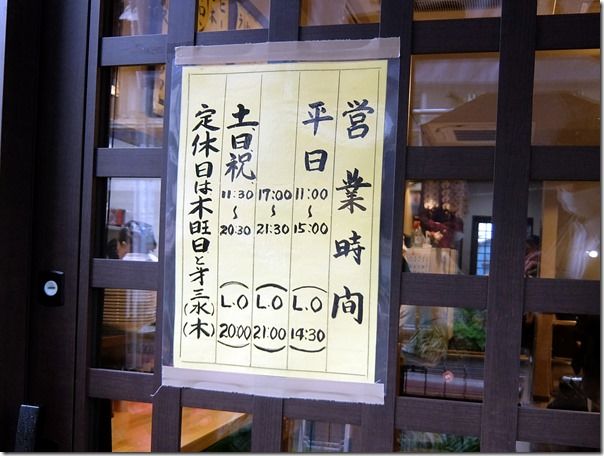 営業時間
平日 11:00〜15:00 (L.O 14:30)
17:00〜21:30 (L.O 21:00)
土日祝 11:30〜20:30 (L.O 20:00)
定休日は木旺日と才三水(木)